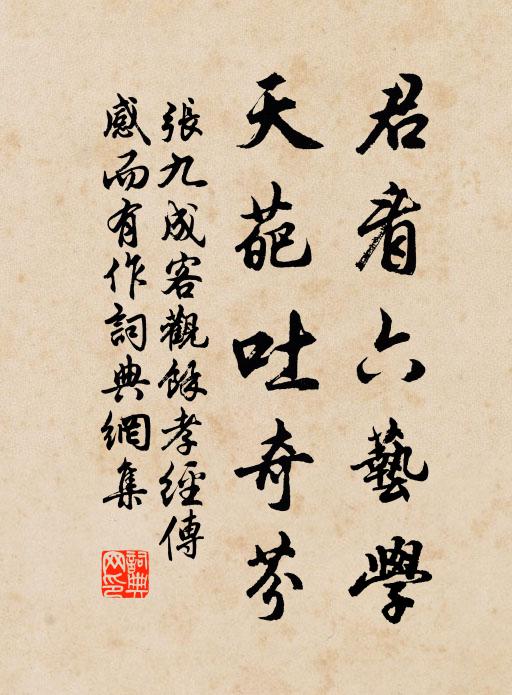 君看六藝學
天葩吐奇芬
張九成客觀餘孝經傳
感而有作詞典網集
詞典網印